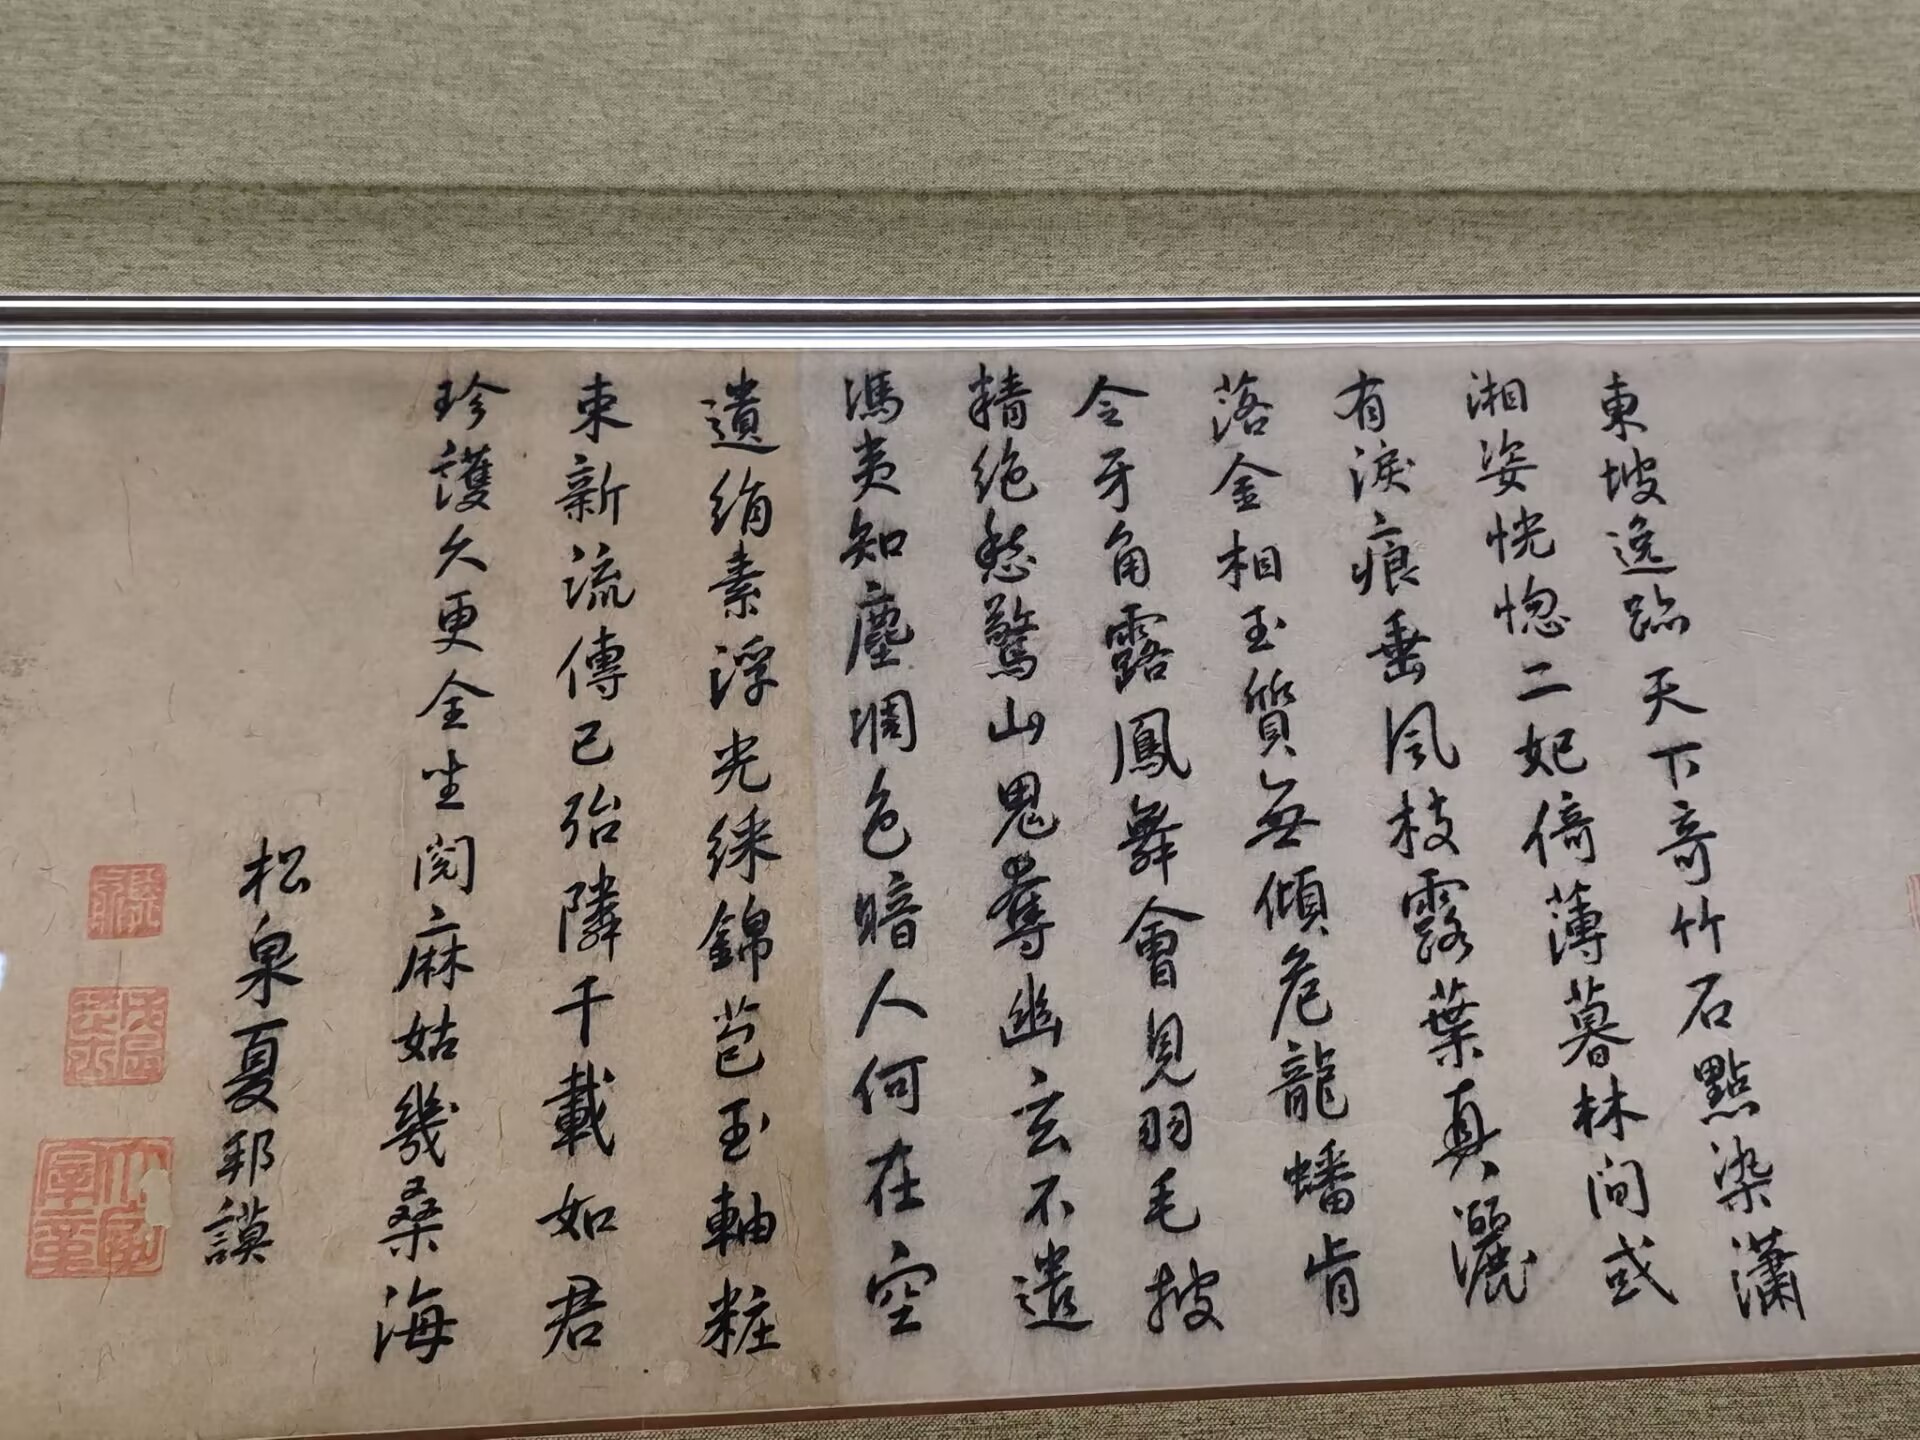 東坡逸跡天下奇竹石點染瀟
湘姿恍惚二妃倚薄暮林間或
有淚痕垂風枝露葉真灑
落金相玉質無傾危龍蟠肯
令牙角露鳳舞會見羽毛披
精絶愁驚山鬼奪幽玄不遣
馮夷知塵凋色暗人何在空
遺絹素浮光綵錦苞玉軸粧
束新流傳已殆隣千載如君
珍護久更全坐閲麻姑幾桑海
松泉夏邦謨